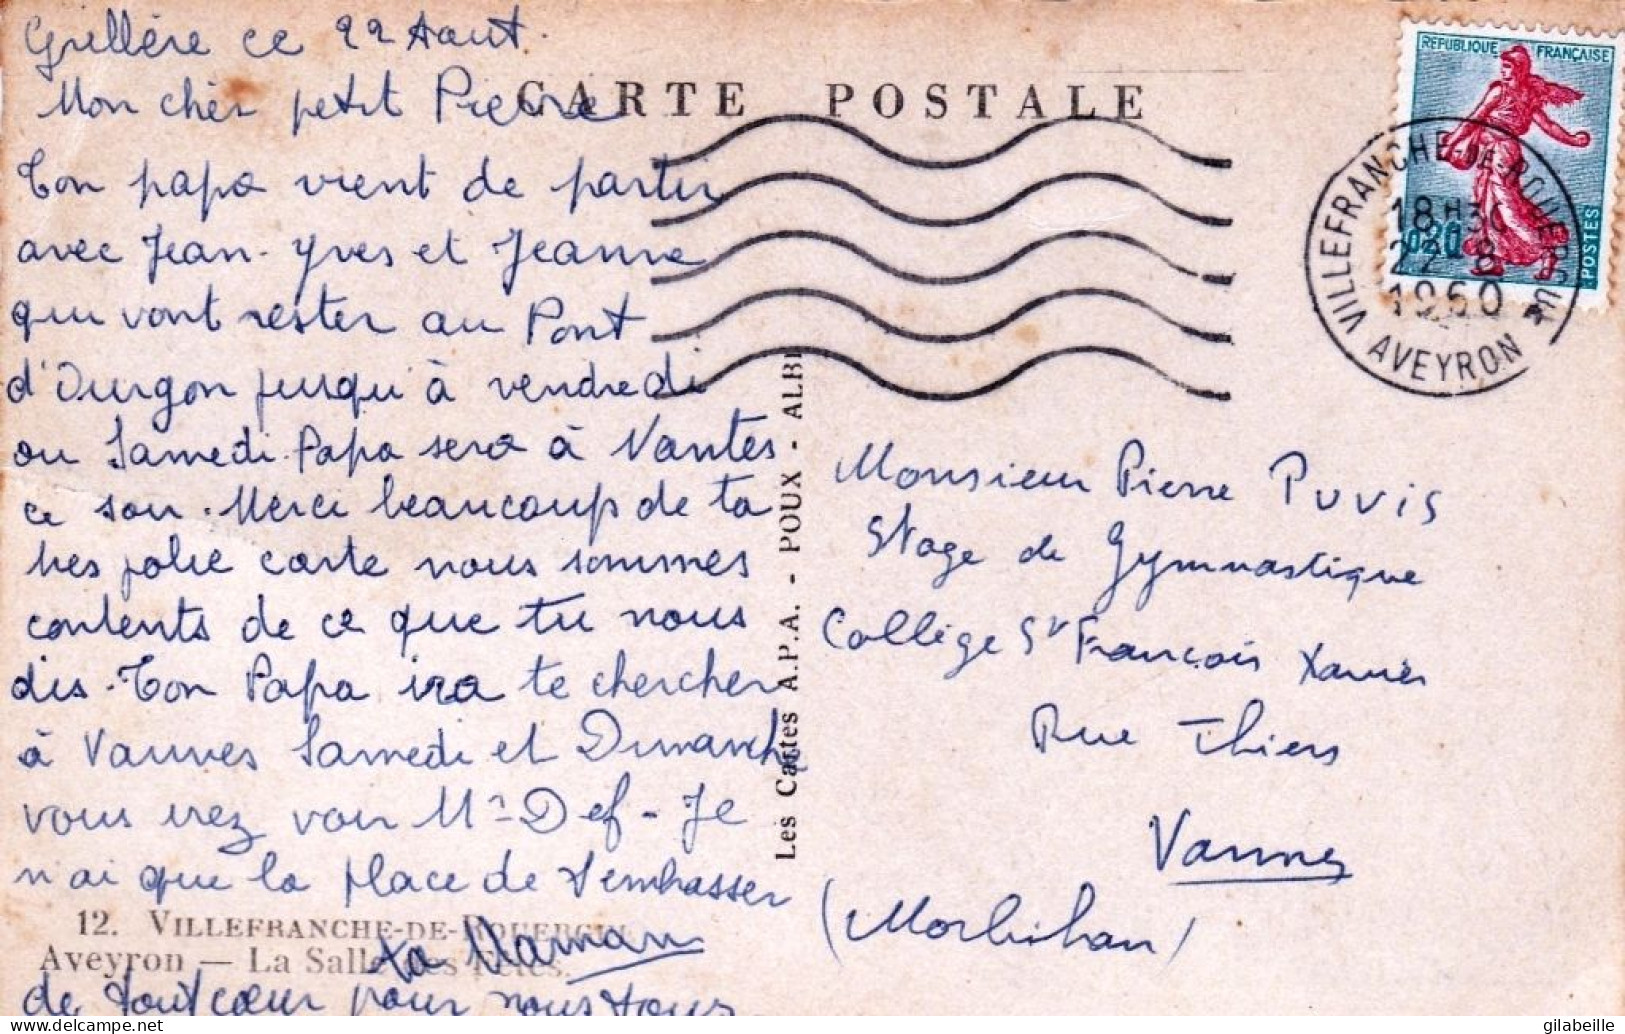 Grellère ce 22 Aout.
Mon cher petit Pierre
CARTE POSTALE
Ton papa vient de partir
avec Jean-Yves et Jeanne
qui vont rester au Pont
d'Ourgon jusqu'à vendredi
ou Samedi. Papa sera à Nantes
ce soir. Merci beaucoup de ta
tres jolie carte nous sommes
contents de ce que tu nous
dis. Ton Papa ira te chercher
à Vannes Samedi et Dimanche
vous irez voir Mr Def - Je
n'ai que la place de t'embrasser
de tout cœur pour nous tous
ta Maman
12. VILLEFRANCHE-DE-ROUERGUE
Aveyron — La Salle des Fêtes.
Les Cartes A.P.A. - POUX - ALBI
REPUBLIQUE FRANÇAISE
0,20
POSTES
VILLEFRANCHE-DE-ROUERGUE
18H30
22-8
1960
AVEYRON
Monsieur Pierre PUVIS
Stage de Gymnastique
Collège St François Xavier
Rue Thiers
Vannes
(Morbihan)
gilabeille